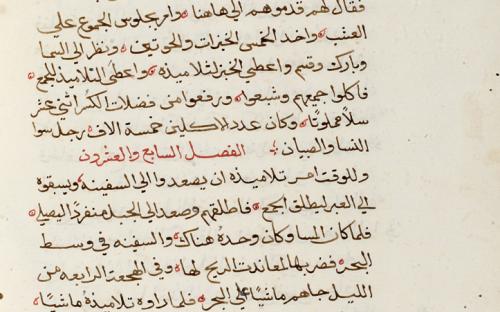 فقال لهم قدموهم الي هاهنا وامر بجلوس الجموع علي
العشب واخد الخمس الخبزات والحوتين ونظر الي السما
وبارك وقسم واعطي الخبز لتلاميذه واعطي التلاميذ للجمع
فاكلوا جميعهم وشبعوا ورفعوا من فضلات الكسر اثني عشر
سلاً مملوتًا وكان عدد الاكلين خمسة الاف رجل سوا
النسا والصبيان الفصل السابع والعشرون
وللوقت امر تلاميذه ان يصعدوا الي السفينه ويسبقوه
الي العبر ليطلق الجمع فاطلقهم وصعد الي الجبل منفردًا ليصلي
فلما كان المسا وكان وحده هناك والسفينه في وسط
البحر فضربها لمعاندت الريح لها وفي الهجعة الرابعه من
الليل جاهم ماشيًا علي البحر فلما راوه تلاميذه ماشيًا